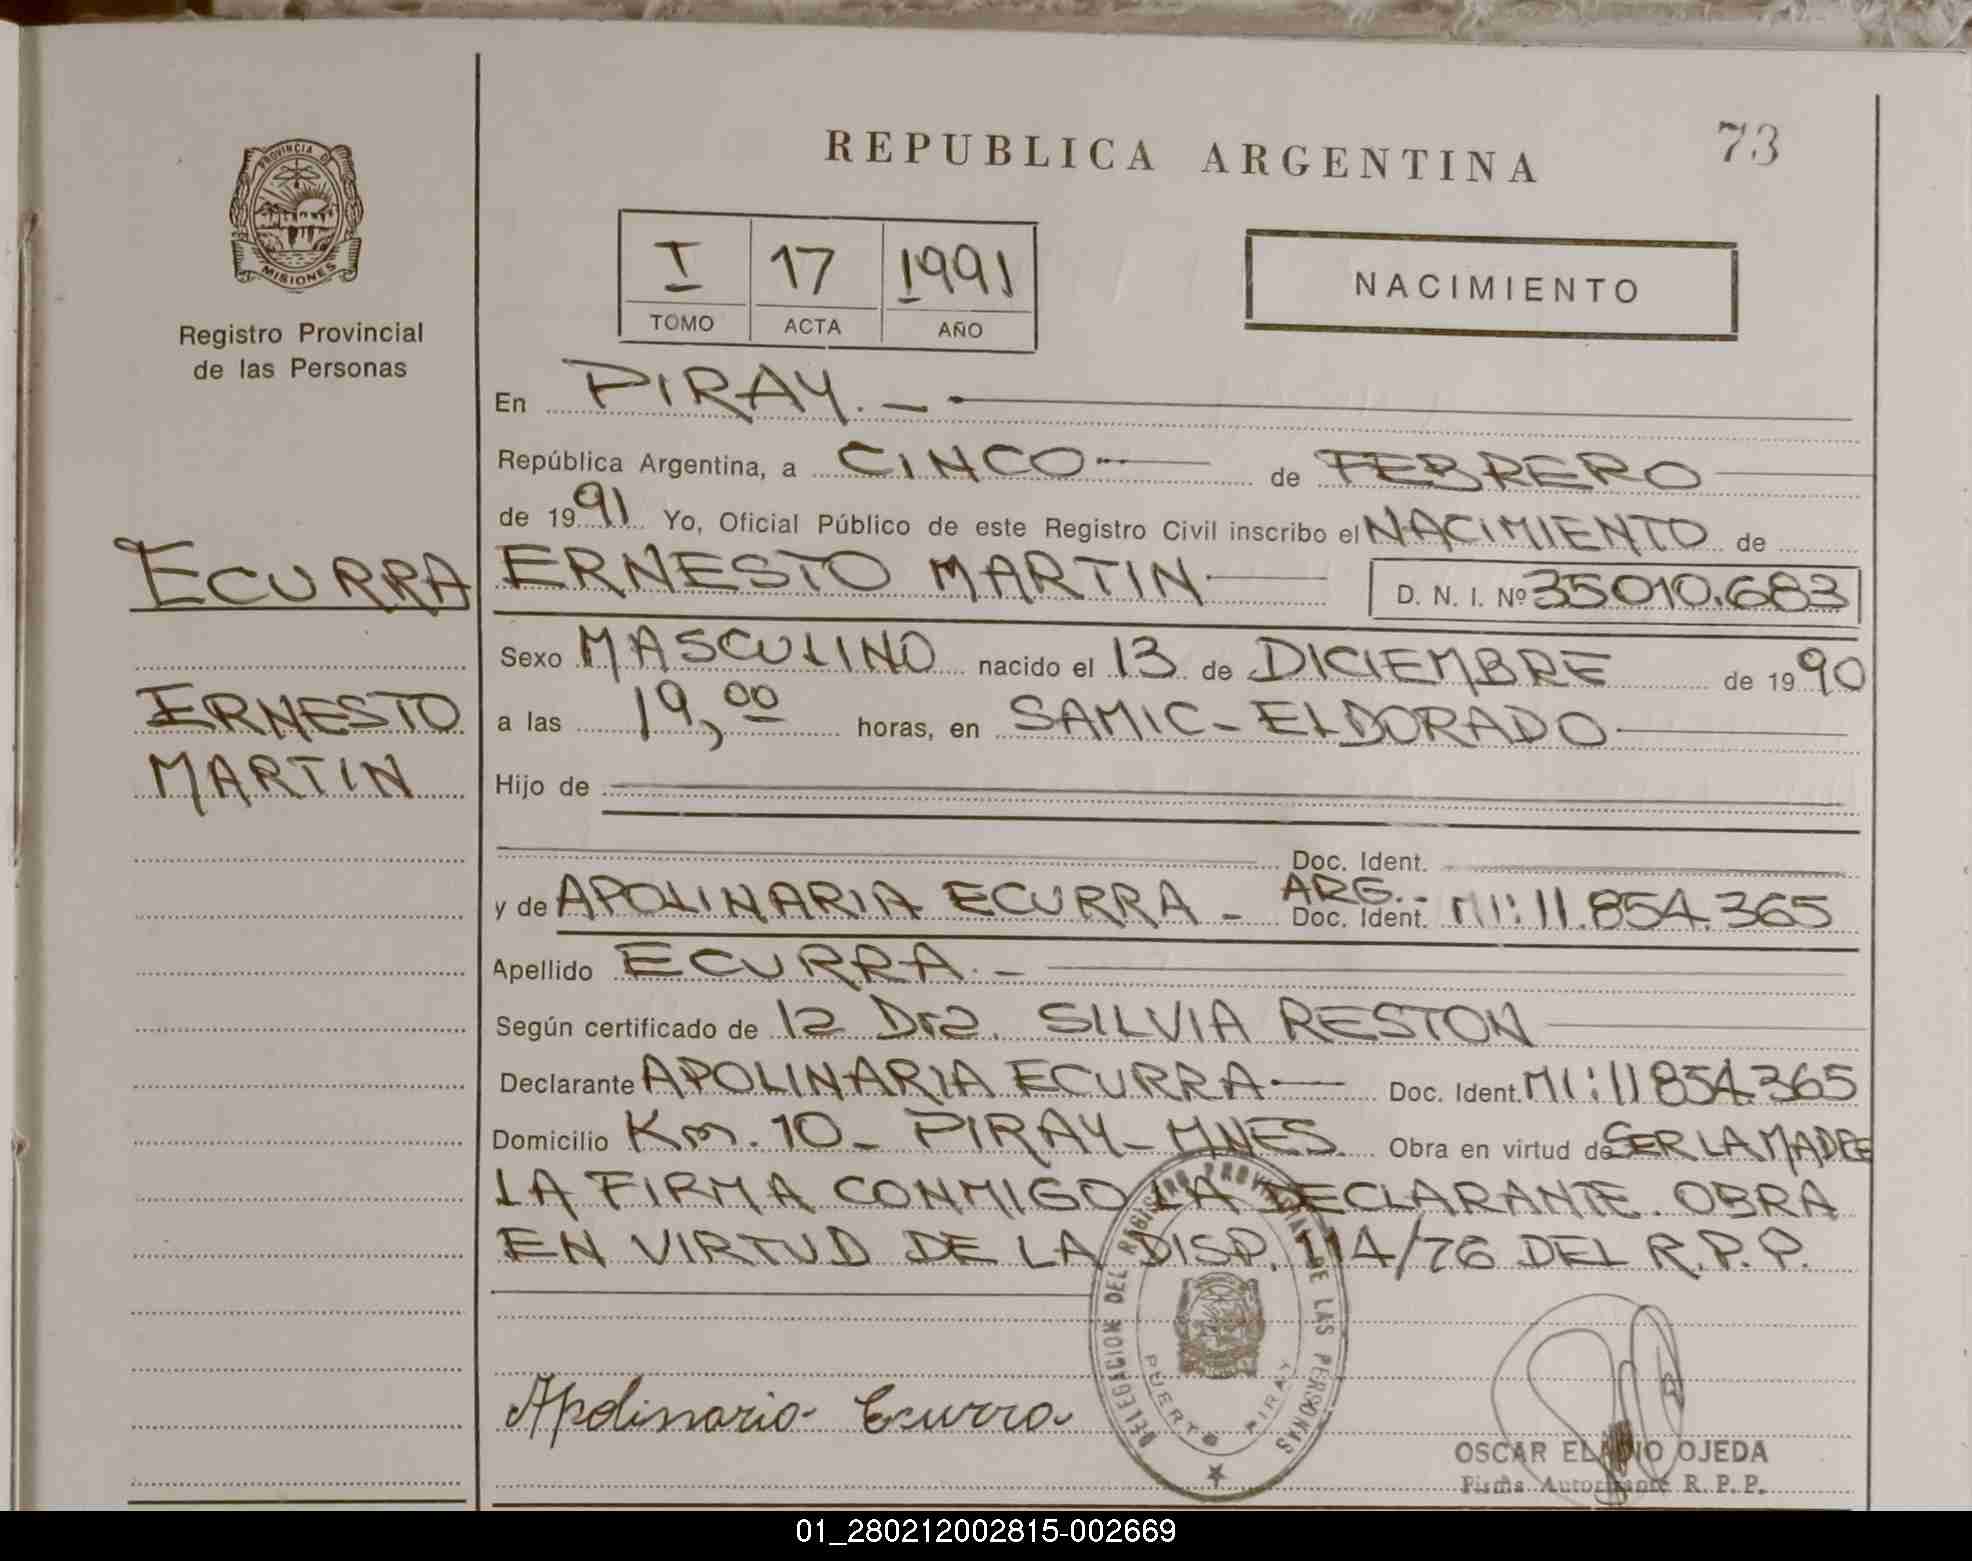 PROVINCIA DE
MISIONES
Registro Provincial
de las Personas
ECURRA
ERNESTO
MARTIN
REPUBLICA ARGENTINA
73
I 17 1991
TOMO ACTA AÑO
NACIMIENTO
En PIRAY.-
República Argentina, a CINCO de FEBRERO
de 1991 Yo, Oficial Público de este Registro Civil inscribo el NACIMIENTO de
ERNESTO MARTIN D. N. I. Nº 35010.683
Sexo MASCULINO nacido el 13 de DICIEMBRE de 1990
a las 19,00 horas, en SAMIC - ELDORADO
Hijo de
Doc. Ident.
y de APOLINARIA ECURRA - ARG.- Doc. Ident. MI: 11.854.365
Apellido ECURRA.-
Según certificado de la Dra. SILVIA RESTON
Declarante APOLINARIA ECURRA Doc. Ident. MI: 11854.365
Domicilio Km. 10 - PIRAY - MNES. Obra en virtud de SER LA MADRE
LA FIRMA CONMIGO LA DECLARANTE. OBRA
EN VIRTUD DE LA DISP. 114/76 DEL R.P.P.
DELEGACION DEL REGISTRO PROVINCIAL DE LAS PERSONAS
PUERTO PIRAY
Apolinaria Ecurra
OSCAR ELADIO OJEDA
Firma Autorizante R. P. P.
01_280212002815-002669